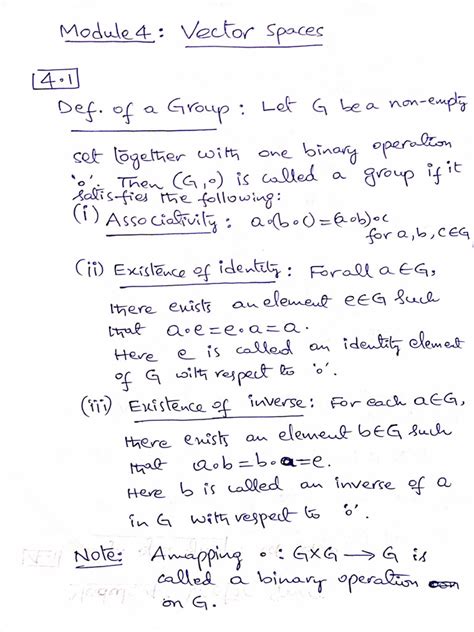 Module 4 : Vector spaces
4.1
Def. of a Group : Let G be a non-empty
set together with one binary operation
'o'. Then (G, o) is called a group if it
satisfies the following:
(i) Associativity : ao(boc)=(aob)oc
for a, b, c∈G
(ii) Existence of identity : For all a∈G,
there exists an element e∈G such
that aoe=eoa=a.
Here e is called an identity element
of G with respect to 'o'.
(iii) Existence of inverse : For each a∈G,
there exists an element b∈G such
that aob=boa=e.
Here b is called an inverse of a
in G with respect to 'o'.
Note: A mapping o : G×G → G is
called a binary operation
on G.